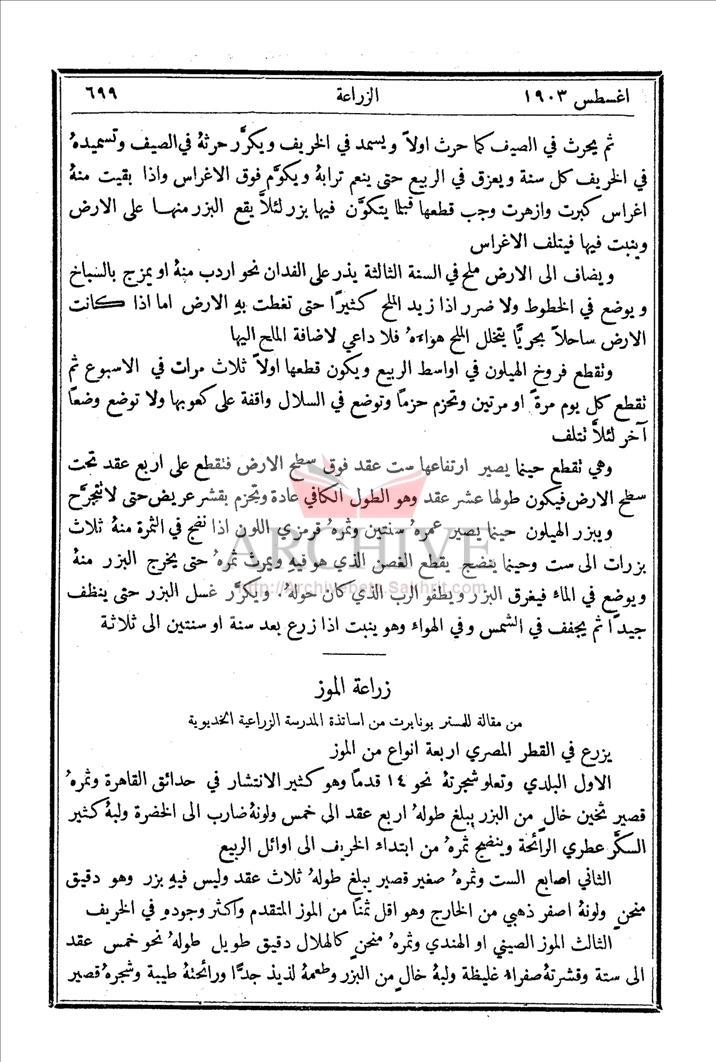 اغسطس ١٩٠٣ الزراعة ٦٩٩
ثم يحرث في الصيف كما حرث اولاً ويسمد في الخريف ويكرَّر حرثهُ في الصيف وتسميدهُ
في الخريف كل سنة ويعزق في الربيع حتى ينعم ترابهُ ويكوَّم فوق الاغراس واذا بقيت منهُ
اغراس كبرت وازهرت وجب قطعها قبلما يتكوَّن فيها بزر لئلاَّ يقع البزر منها على الارض
وينبت فيها فيتلف الاغراس
ويضاف الى الارض ملح في السنة الثالثة يذر على الفدان نحو اردب منهُ او يمزج بالسباخ
ويوضع في الخطوط ولا ضرر اذا زيد الملح كثيرًا حتى تغطت بهِ الارض اما اذا كانت
الارض ساحلاً بحريًّا يتخلل الملح هواءهُ فلا داعي لاضافة الملح اليها
وتقطع فروخ الهيلون في اواسط الربيع ويكون قطعها اولاً ثلاث مرات في الاسبوع ثم
تقطع كل يوم مرةً او مرتين وتحزم حزمًا وتوضع في السلال واقفة على كعوبها ولا توضع وضعًا
آخر لئلاَّ تتلف
وهي تقطع حينما يصير ارتفاعها ست عقد فوق سطح الارض فتقطع على اربع عقد تحت
سطح الارض فيكون طولها عشر عقد وهو الطول الكافي عادة وتحزم بقشر عريض حتى لا تتجرَّح
ويبزر الهيلون حينما يصير عمرهُ سنتين وثمرهُ قرمزي اللون اذا نضج في الثمرة منهُ ثلاث
ARCHIVE
بزرات الى ست وحينما ينضج يقطع الغصن الذي هو فيهِ ويمرث ثمرهُ حتى يخرج البزر منهُ
http://Archivebeta.Sakhrit.com
ويوضع في الماء فيغرق البزر ويطفو الرب الذي كان حولهُ. ويكرَّر غسل البزر حتى ينظف
جيدًا ثم يجفف في الشمس وفي الهواء وهو ينبت اذا زرع بعد سنة او سنتين الى ثلاثة
زراعة الموز
من مقالة للمستر بونابرت من اساتذة المدرسة الزراعية الخديوية
يزرع في القطر المصري اربعة انواع من الموز
الاول البلدي وتعلو شجرتهُ نحو ١٤ قدمًا وهو كثير الانتشار في حدائق القاهرة وثمرهُ
قصير ثخين خالٍ من البزر يبلغ طولهُ اربع عقد الى خمس ولونهُ ضارب الى الخضرة ولبهُ كثير
السكَّر عطري الرائحة وينضج ثمرهُ من ابتداء الخريف الى اوائل الربيع
الثاني اصابع الست وثمرهُ صغير قصير يبلغ طولهُ ثلاث عقد وليس فيهِ بزر وهو دقيق
منحنٍ ولونهُ اصفر ذهبي من الخارج وهو اقل ثمنًا من الموز المتقدم واكثر وجودهِ في الخريف
الثالث الموز الصيني او الهندي وثمرهُ منحنٍ كالهلال دقيق طويل طولهُ نحو خمس عقد
الى ستة وقشرتهُ صفراء غليظة ولبهُ خالٍ من البزر وطعمهُ لذيذ جدًّا ورائحتهُ طيبة وشجرهُ قصير